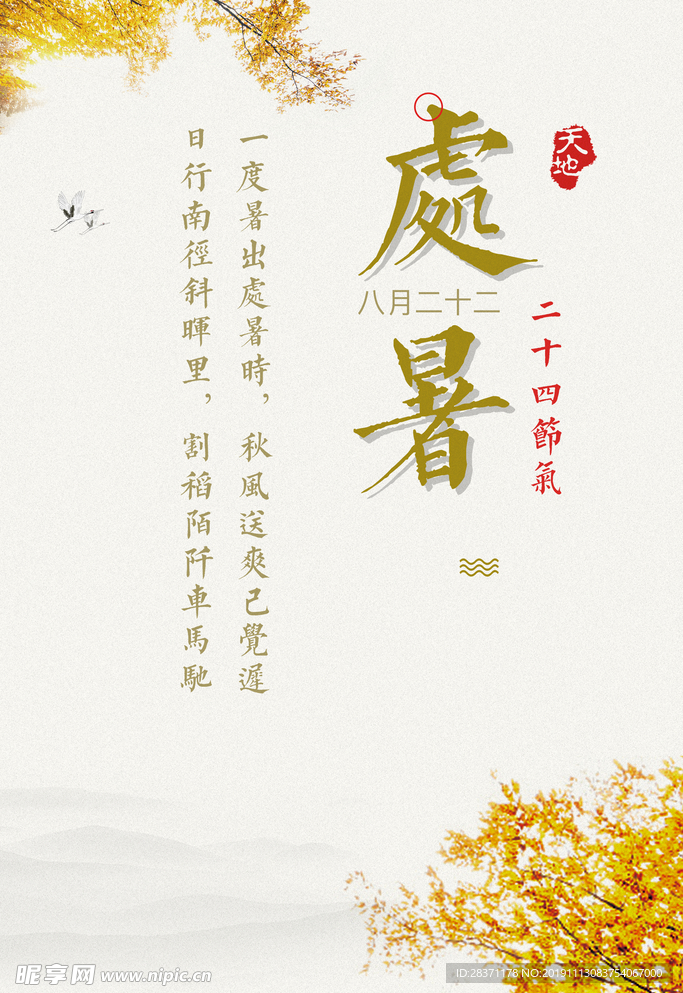 處暑
八月二十二
天地
二十四節氣
一度暑出處暑時，秋風送爽已覺遲
日行南徑斜暉里，割稻陌阡車馬馳
昵享网 www.nipic.cn
ID:28371178 NO:20191113083754067000